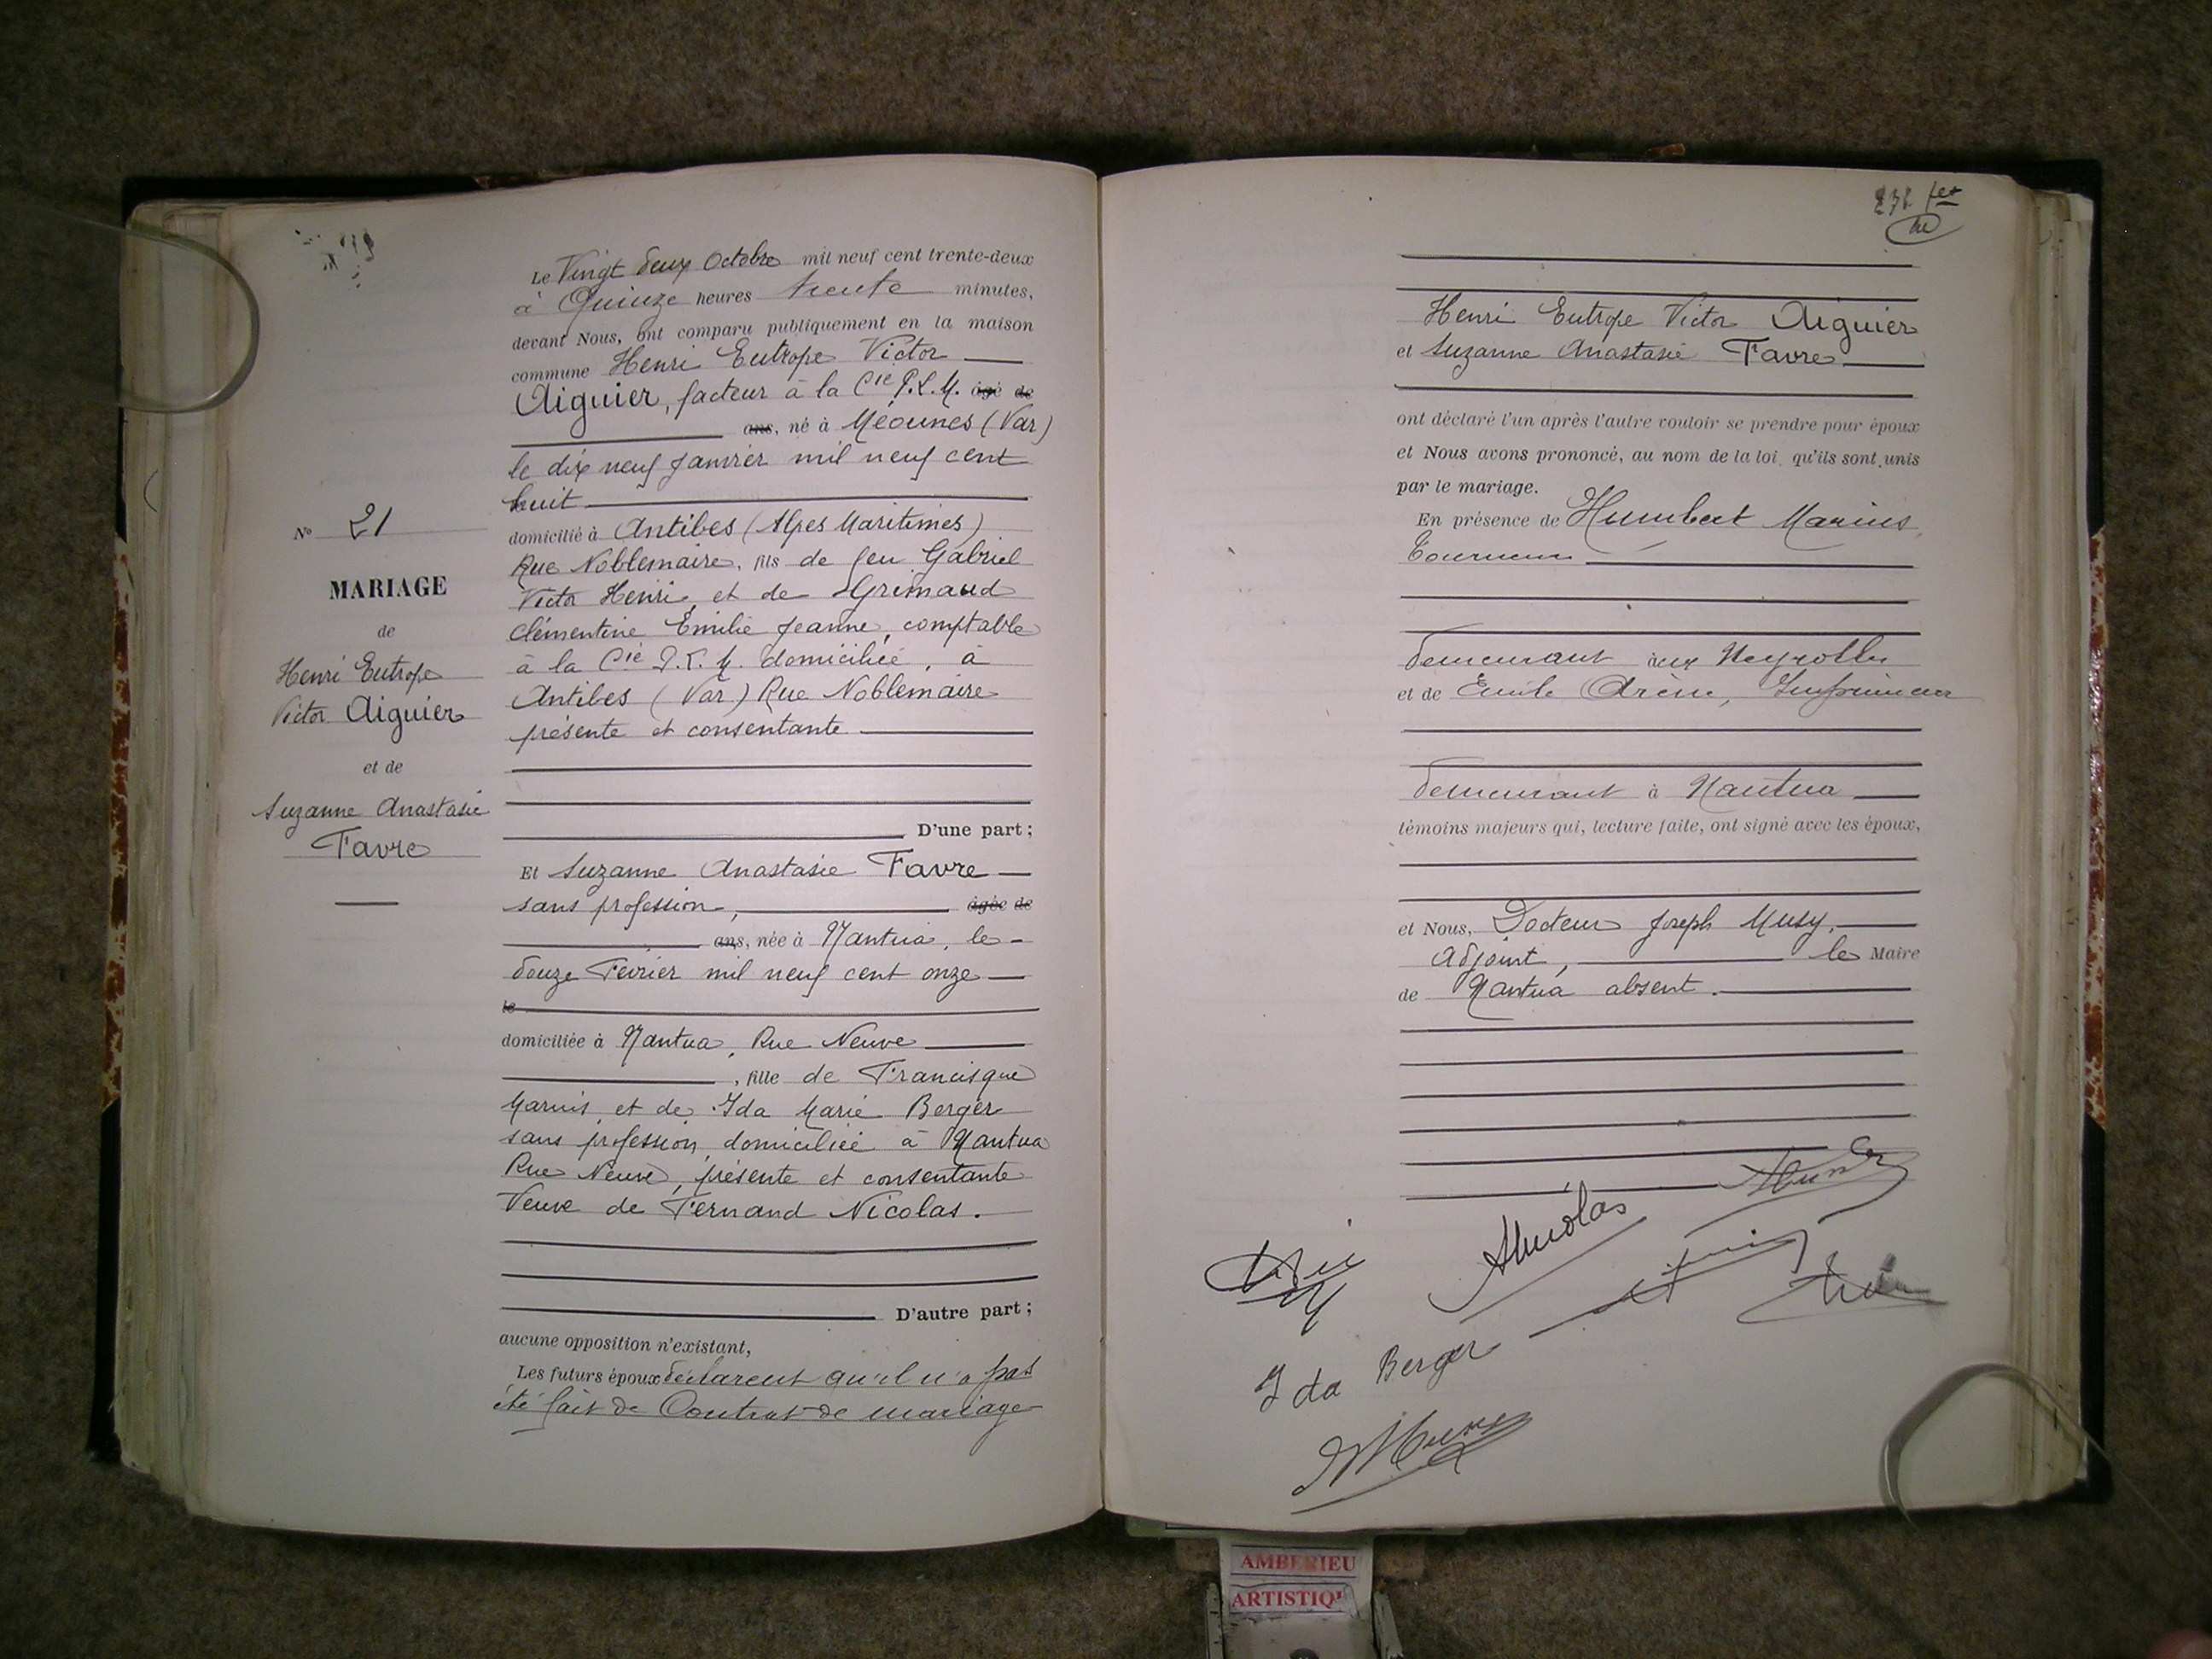 Nº 21
MARIAGE
de
Henri Eutrope
Victor Aiguier
et de
Suzanne Anastasie
Favre
Le Vingt deux Octobre mil neuf cent trente-deux
à Quinze heures trente minutes,
devant Nous, ont comparu publiquement en la maison
commune Henri Eutrope Victor
Aiguier, facteur à la Cie P.L.M. âgé de
ans, né à Méounes (Var)
le dix neuf Janvier mil neuf cent
huit
domicilié à Antibes (Alpes Maritimes)
Rue Noblemaire, fils de feu Gabriel
Victor Henri, et de Grimaud
Clémentine Emilie Jeanne, comptable
à la Cie P.L.M. domiciliée, à
Antibes (Var) Rue Noblemaire
présente et consentante
D'une part ;
Et Suzanne Anastasie Favre
sans profession, âgée de
ans, née à Nantua, le
douze Février mil neuf cent onze
le
domiciliée à Nantua, Rue Neuve
, fille de Francisque
Marius, et de Ida Marie Berger
sans profession, domiciliée à Nantua
Rue Neuve, présente et consentante
Veuve de Fernand Nicolas.
D'autre part ;
aucune opposition n'existant,
Les futurs époux déclarent qu'il n'a pas
été fait de Contrat de mariage
Henri Eutrope Victor Aiguier
et Suzanne Anastasie Favre
ont déclaré l'un après l'autre vouloir se prendre pour époux
et Nous avons prononcé, au nom de la loi, qu'ils sont unis
par le mariage.
En présence de Humbert Marius,
Tourneur
demeurant aux Neyrolles
et de Emile Arène, Imprimeur
demeurant à Nantua
témoins majeurs qui, lecture faite, ont signé avec les époux,
et Nous, Docteur Joseph Musy,
Adjoint, le Maire
de Nantua absent.
Ida Berger